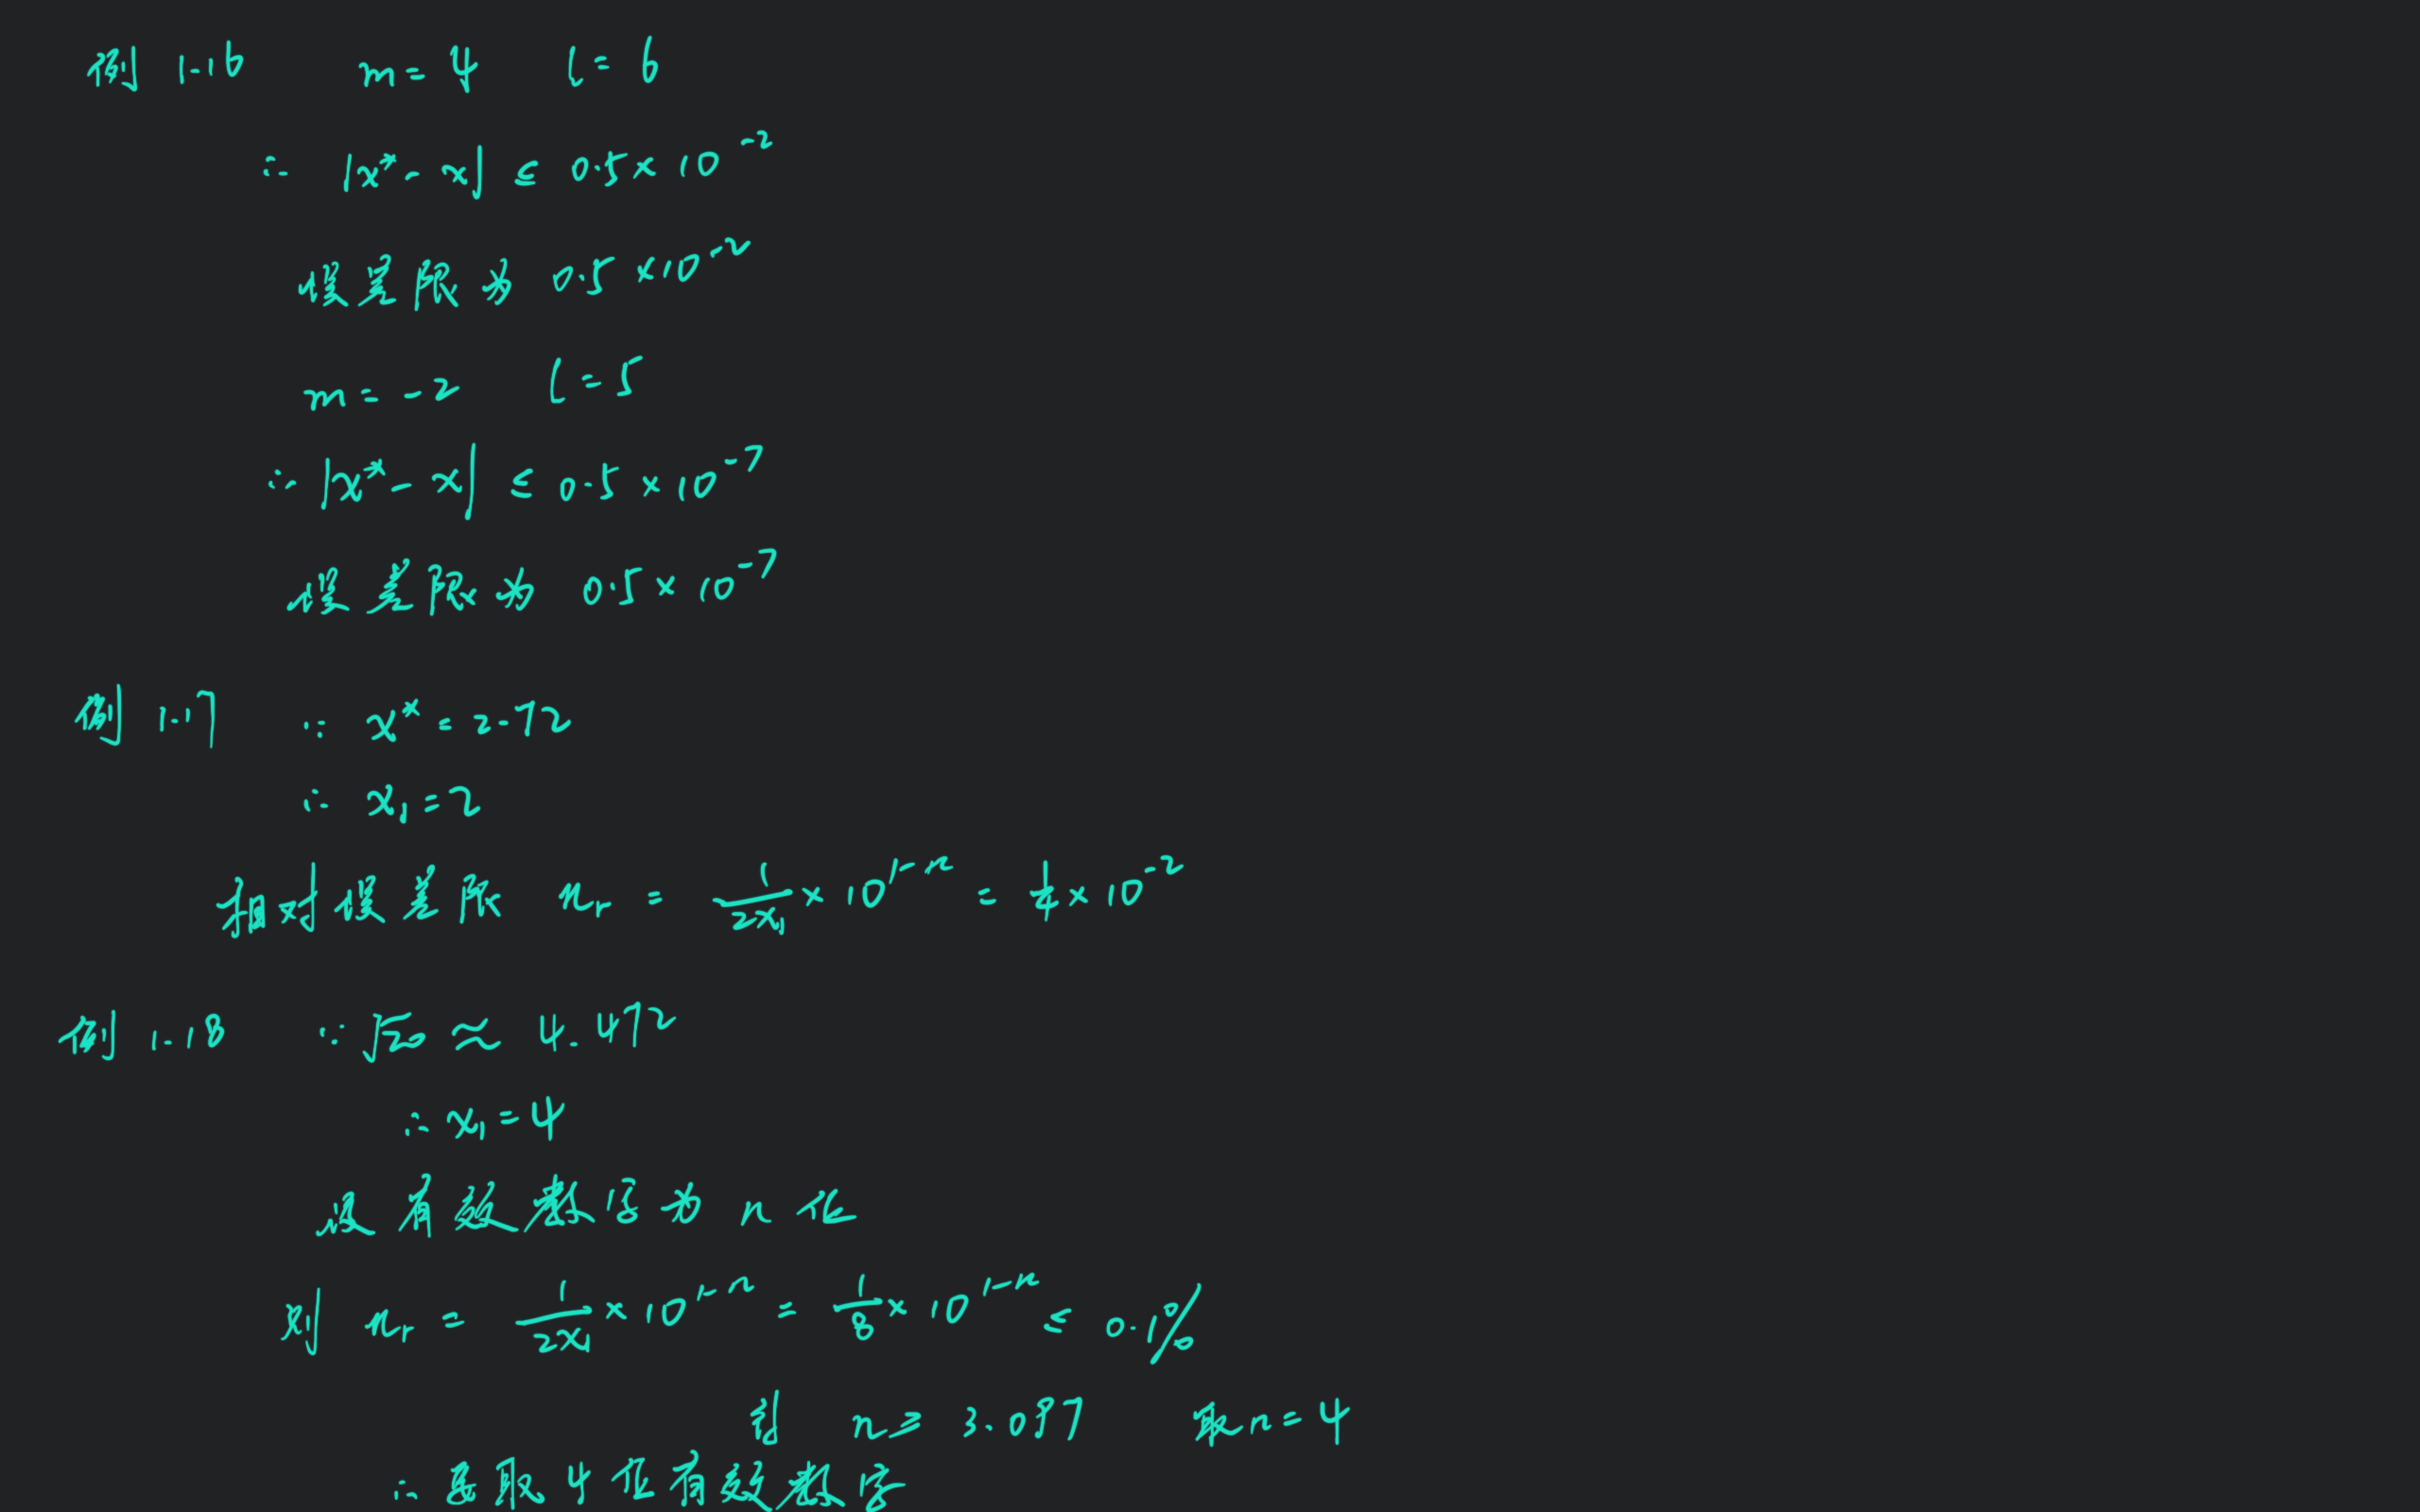 例 1.16 m=4 l=6
∴ |x*-x| ≤ 0.5×10⁻²
误差限为 0.5×10⁻²
m=-2 l=5
∴ |x*-x| ≤ 0.5×10⁻⁷
误差限为 0.5×10⁻⁷
例 1.17 ∵ x*=2.72
∴ x₁=2
相对误差限 nᵣ = 1/(2x₁) × 10¹⁻ⁿ = 1/4 × 10⁻²
例 1.18 ∵ √20 ≈ 4.472
∴ x₁=4
设有效数字为 n 位
则 nᵣ = 1/(2x₁) × 10¹⁻ⁿ = 1/8 × 10¹⁻ⁿ ≤ 0.1%
n ≥ 3.097 取 n=4
∴ 取 4 位有效数字